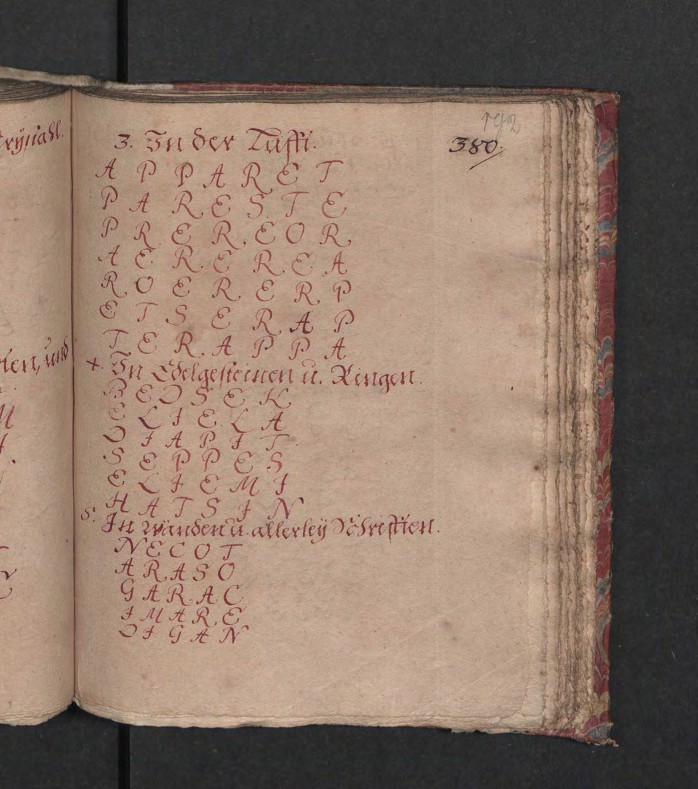 192
380.
3. In der Lufft.
A P P A R E T
P A R E S T E
P R E R E O R
A E R E R E A
R O E R E R P
E T S E R A P
T E R A P P A
4. In Edelgesteinen u. Ringen.
B E D S E K
E L I E L A
D I A P I T
S E P P E S
E L I E M I
H A T S I N
5. In wänden u. allerleÿ Schrifften.
N E C O T
A R A S O
G A R A C
I M A R E
D I G A N
ten, und